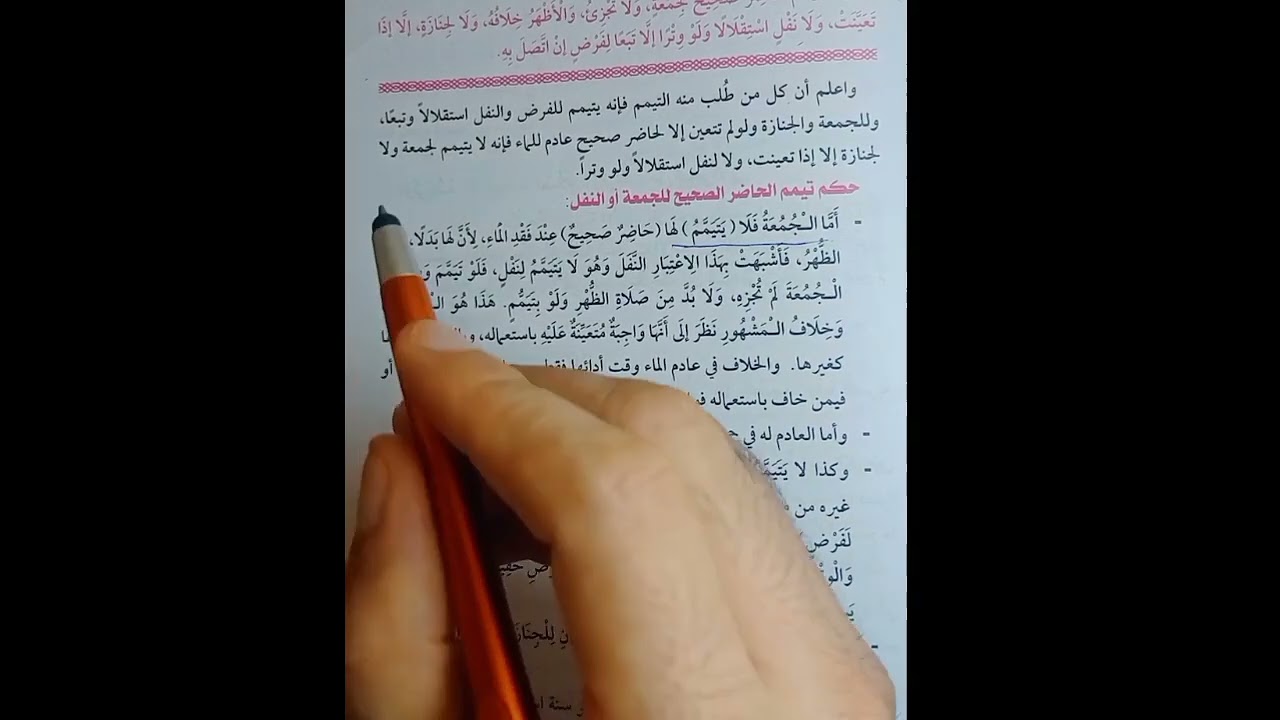 صحيح لجمعة، ولا تجزئ، والأظهر خلافه، ولا لجنازة، إلا إذا
تَعَيَّنَتْ، وَلَا نَفْلٍ اسْتِقْلَالًا وَلَوْ وِتْرًا إِلَّا تَبَعًا لِفَرْضٍ إِنْ اتَّصَلَ بِهِ.
واعلم أن كل من طُلب منه التيمم فإنه يتيمم للفرض والنفل استقلالاً وتبعًا،
وللجمعة والجنازة ولو لم تتعين إلا لحاضر صحيح عادم للماء فإنه لا يتيمم لجمعة ولا
لجنازة إلا إذا تعينت، ولا لنفل استقلالاً ولو وتراً.
حكم تيمم الحاضر الصحيح للجمعة أو النفل:
- أَمَّا الْجُمُعَةُ فَلَا (يَتَيَمَّمُ) لَهَا (حَاضِرٌ صَحِيحٌ) عِنْدَ فَقْدِ الْمَاءِ، لِأَنَّ لَهَا بَدَلًا،
الظُّهْرُ، فَأَشْبَهَتْ بِهَذَا الِاعْتِبَارِ النَّفَلَ وَهُوَ لَا يَتَيَمَّمُ لِنَفْلٍ، فَلَوْ تَيَمَّمَ
الْجُمُعَةَ لَمْ تُجْزِهِ، وَلَا بُدَّ مِنَ صَلَاةِ الظُّهْرِ وَلَوْ بِتَيَمُّمٍ. هَذَا هُوَ
وَخِلَافُ الْمَشْهُورِ نَظَرَ إِلَى أَنَّهَا وَاجِبَةٌ مُتَعَيِّنَةٌ عَلَيْهِ باستعماله،
كغيرها. والخلاف في عادم الماء وقت أدائها فقط أو
فيمن خاف باستعماله
- وأما العادم له في
- وكذا لا يَتَيَمَّمُ
غيره من
لَفَرْضٍ
لِلْجِنَازَةِ
سنة